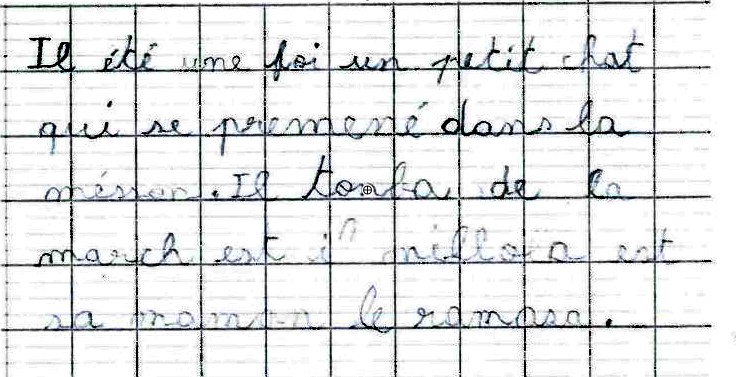 Il été une foi un petit chat
qui se premené dans la
mésson. Il tomba de la
march est il milloa est
sa maman le ramasa.